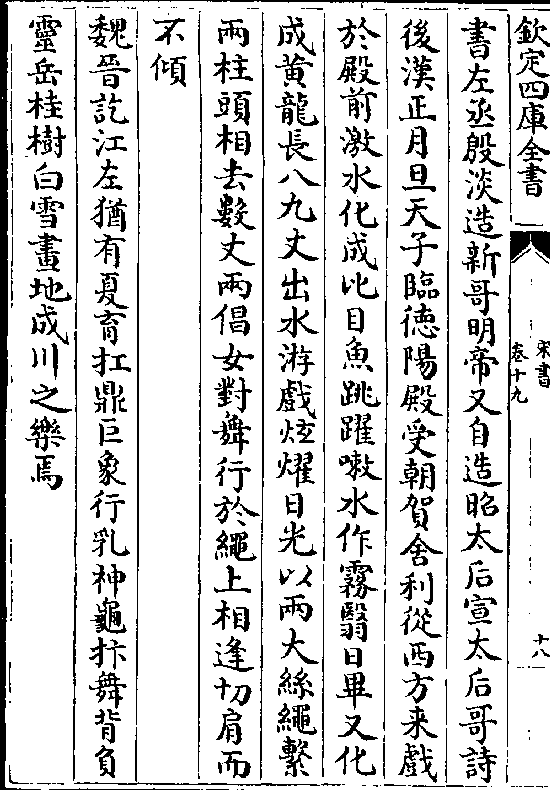 欽定四庫全書
宋書
卷十九
十八
書左丞殷淡造新哥明帝又自造昭太后宣太后哥詩
後漢正月旦天子臨徳陽殿受朝賀舍利從西方来戲
於殿前激水化成比目魚跳躍嗽水作霧翳日畢又化
成黄龍長八九丈出水游戲炫燿日光以兩大絲繩繫
兩柱頭相去數丈兩倡女對舞行於繩上相逢切肩而
不傾
魏晉訖江左猶有夏育扛鼎巨象行乳神龜抃舞背負
靈岳桂樹白雪畫地成川之樂焉